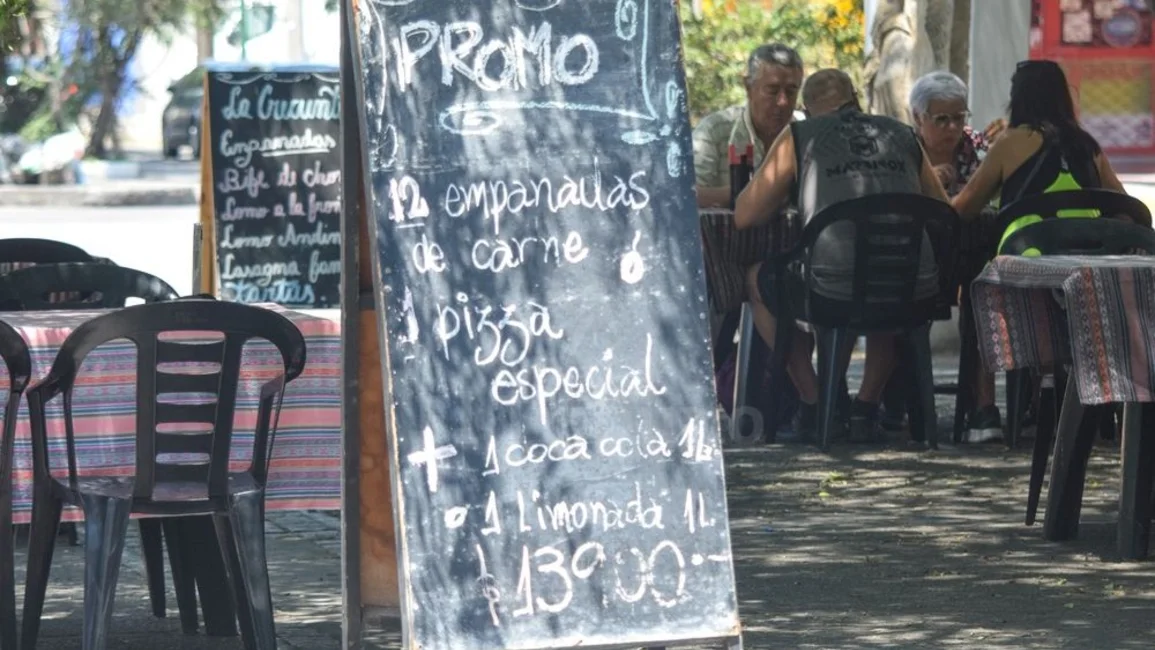 PROMO
12 empanadas
de carne ó
1 pizza
especial
+ 1 coca cola 1L.
1 Limonada 1L.
$13900.-
Empanadas
Lomo a la
Lomo Andin
Lasagna
Tartas